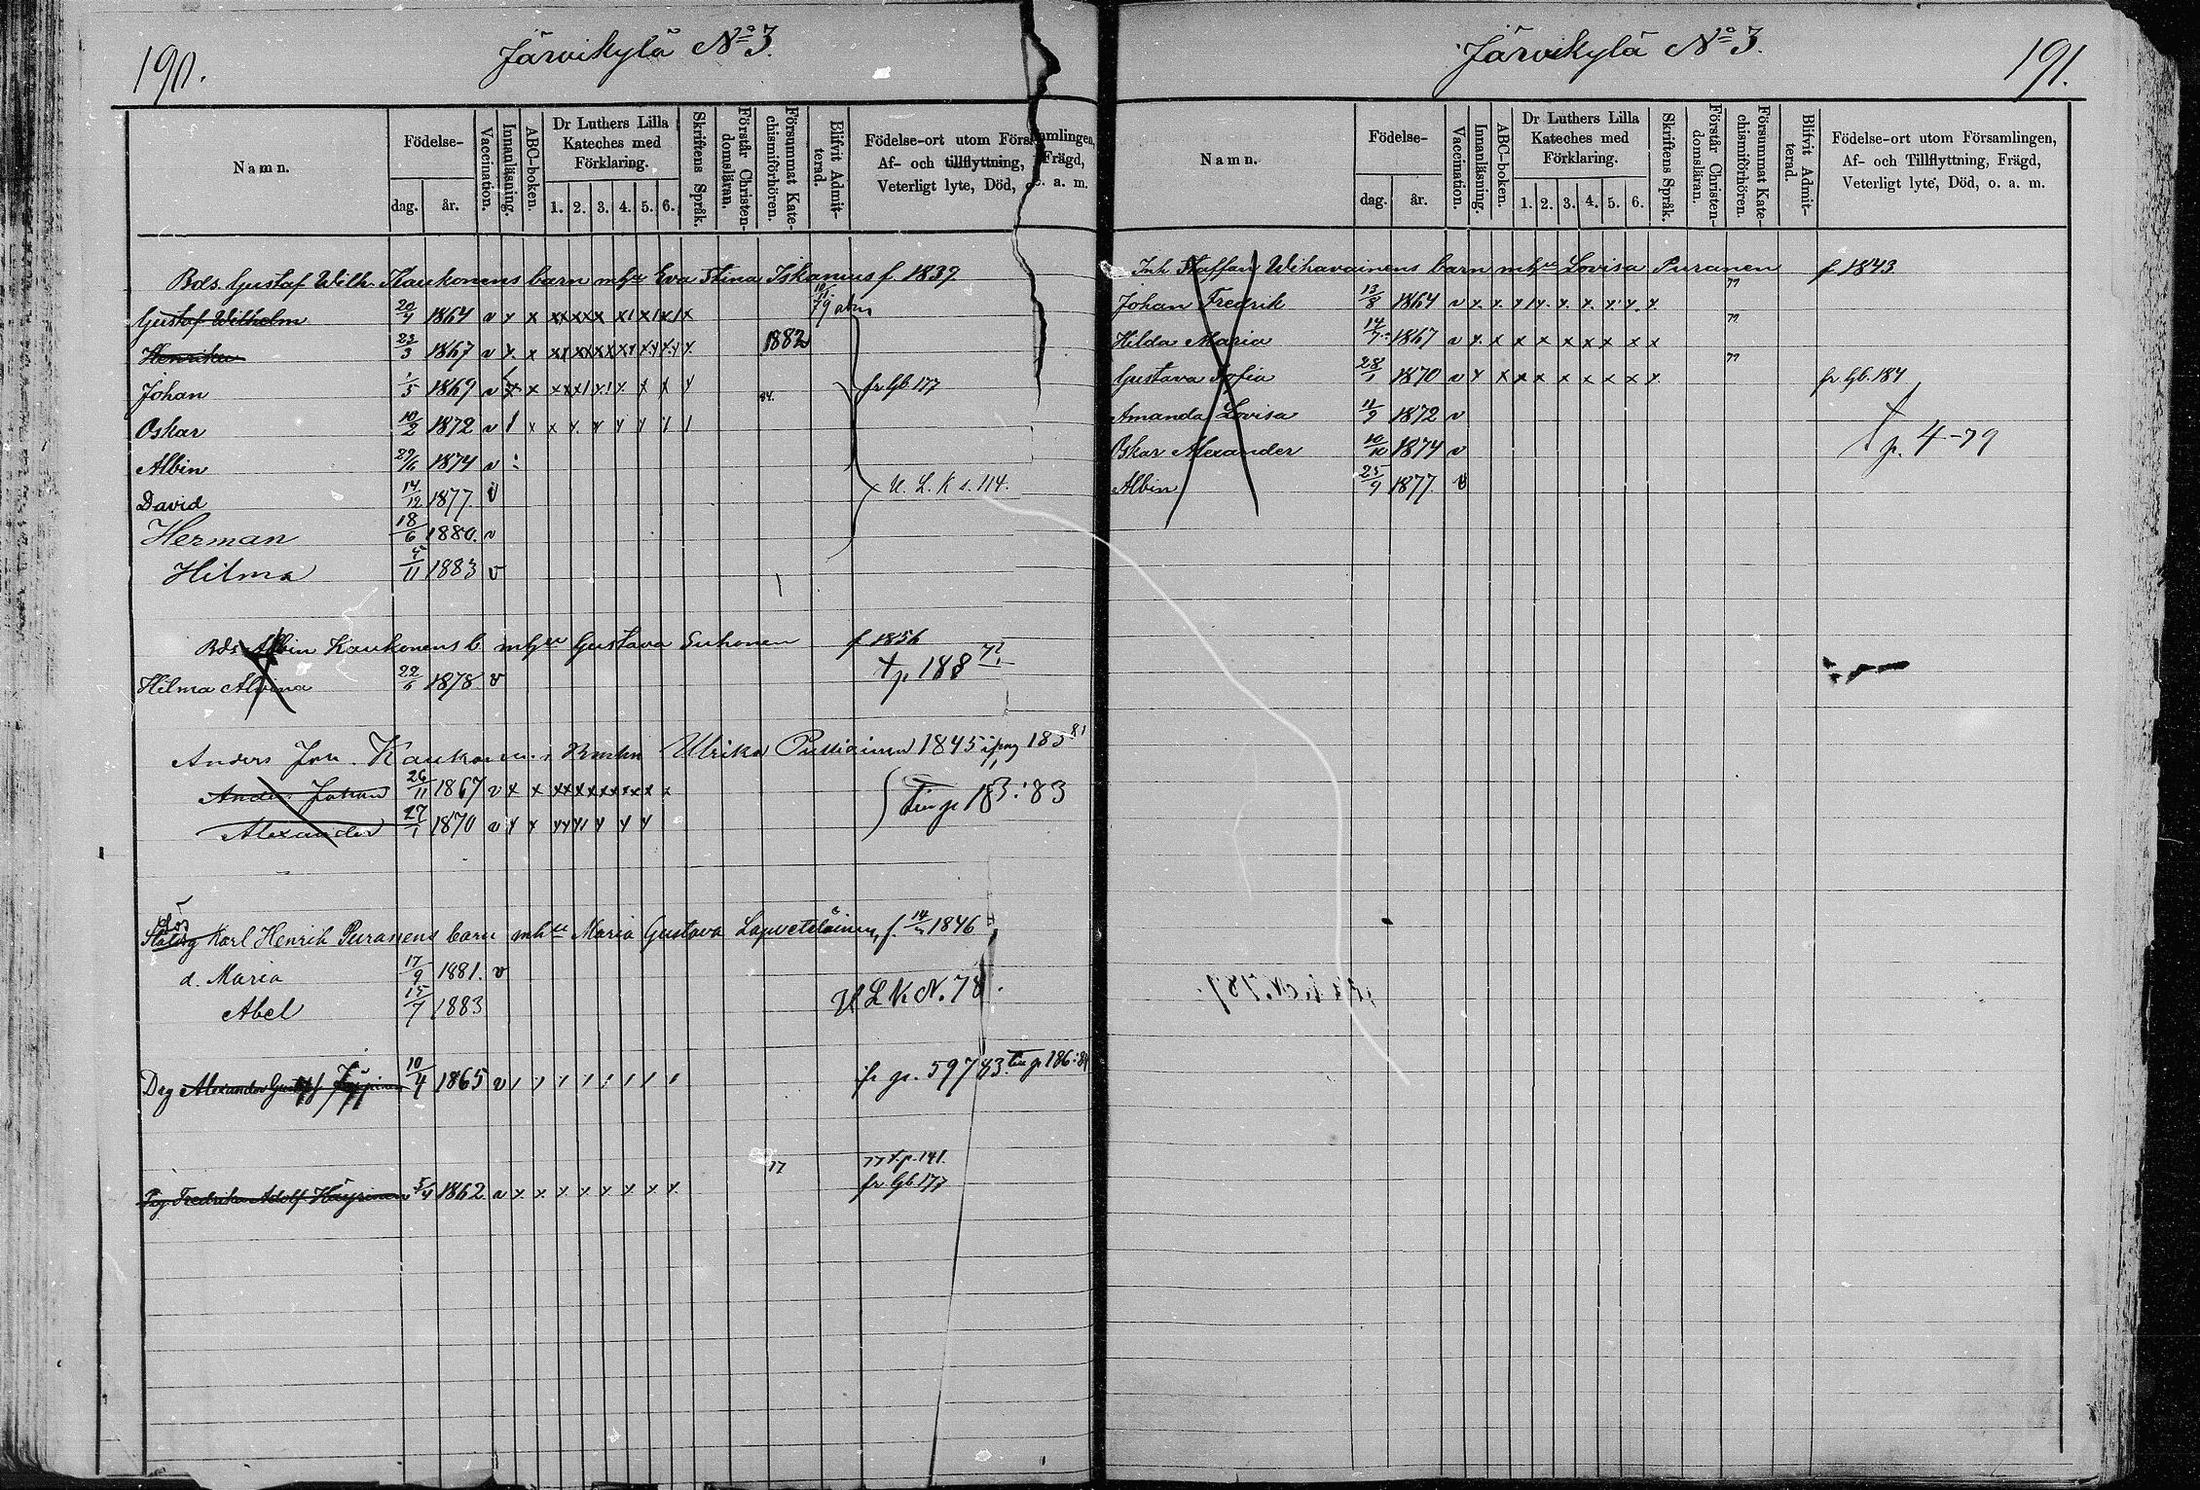 190.
Järvikylä No 3.
Namn.
Födelse-
dag.
år.
Vaccination.
Innanläsning.
ABC-boken.
Dr Luthers Lilla
Kateches med
Förklaring.
1. 2. 3. 4. 5. 6.
Skriftens Språk.
Förstår Christen-
domsläran.
Försummat Kate-
chismiförhören.
Blifvit Admit-
terad.
Födelse-ort utom Församlingen,
Af- och tillflyttning, Frägd,
Veterligt lyte, Död, o. a. m.
Bds. Gustaf Wilh. Kaukonens barn mhu Eva Stina Iskanius f. 1839
Gustaf Wilhelm 20/4 1864 v x x xxxxx
Henrika 22/3 1867 v x x 1882
Johan 1/5 1869 v x x fr Gb 177
Oskar 10/2 1872 v
Albin 29/6 1874 v
David 14/12 1877 v U. L. K s. 114.
Herman 18/6 1880. v
Hilma 5/11 1883 v
Bds Albin Kaukonens b mhu Gustava Suhonen f 1856
Hilma Alvina 22/6 1878 v p. 188
Anders Joh. Ulrika 1845 183 81
Anders Johan 26/11 1867 v x x
p 183: 83
Alexander 27/1 1870 v
Karl Henrik Puranens barn mhu Maria Gustava Lapveteläinen, f. 1846
d. Maria 17/9 1881. v
Abel 15/7 1883
U L K N. 78
Drg Alexander 10/4 1865 v fr p. 597 83 p 186: 84
77 77 t. p. 141.
Fredrik Adolf Häyrinen 5/4 1862 v x x x x x x x x fr Gb 177
191.
Järvikylä No 3.
Namn.
Födelse-
dag.
år.
Vaccination.
Innanläsning.
ABC-boken.
Dr Luthers Lilla
Kateches med
Förklaring.
1. 2. 3. 4. 5. 6.
Skriftens Språk.
Förstår Christen-
domsläran.
Försummat Kate-
chismiförhören.
Blifvit Admit-
terad.
Födelse-ort utom Församlingen,
Af- och Tillflyttning, Frägd,
Veterligt lyte, Död, o. a. m.
Inh Staffan Wihavainens barn mhu Lovisa Puranen f 1843
Johan Fredrik 13/8 1864 v 77
Hilda Maria 14/7 1867 v x x x x x x x x x 77
Gustava Sofia 28/1 1870 v x x x x x x x x x 77 fr Gb. 184
Amanda Lovisa 11/9 1872 v
Oskar Alexander 10/10 1874 v p. 4-79
Albin 25/9 1877 v